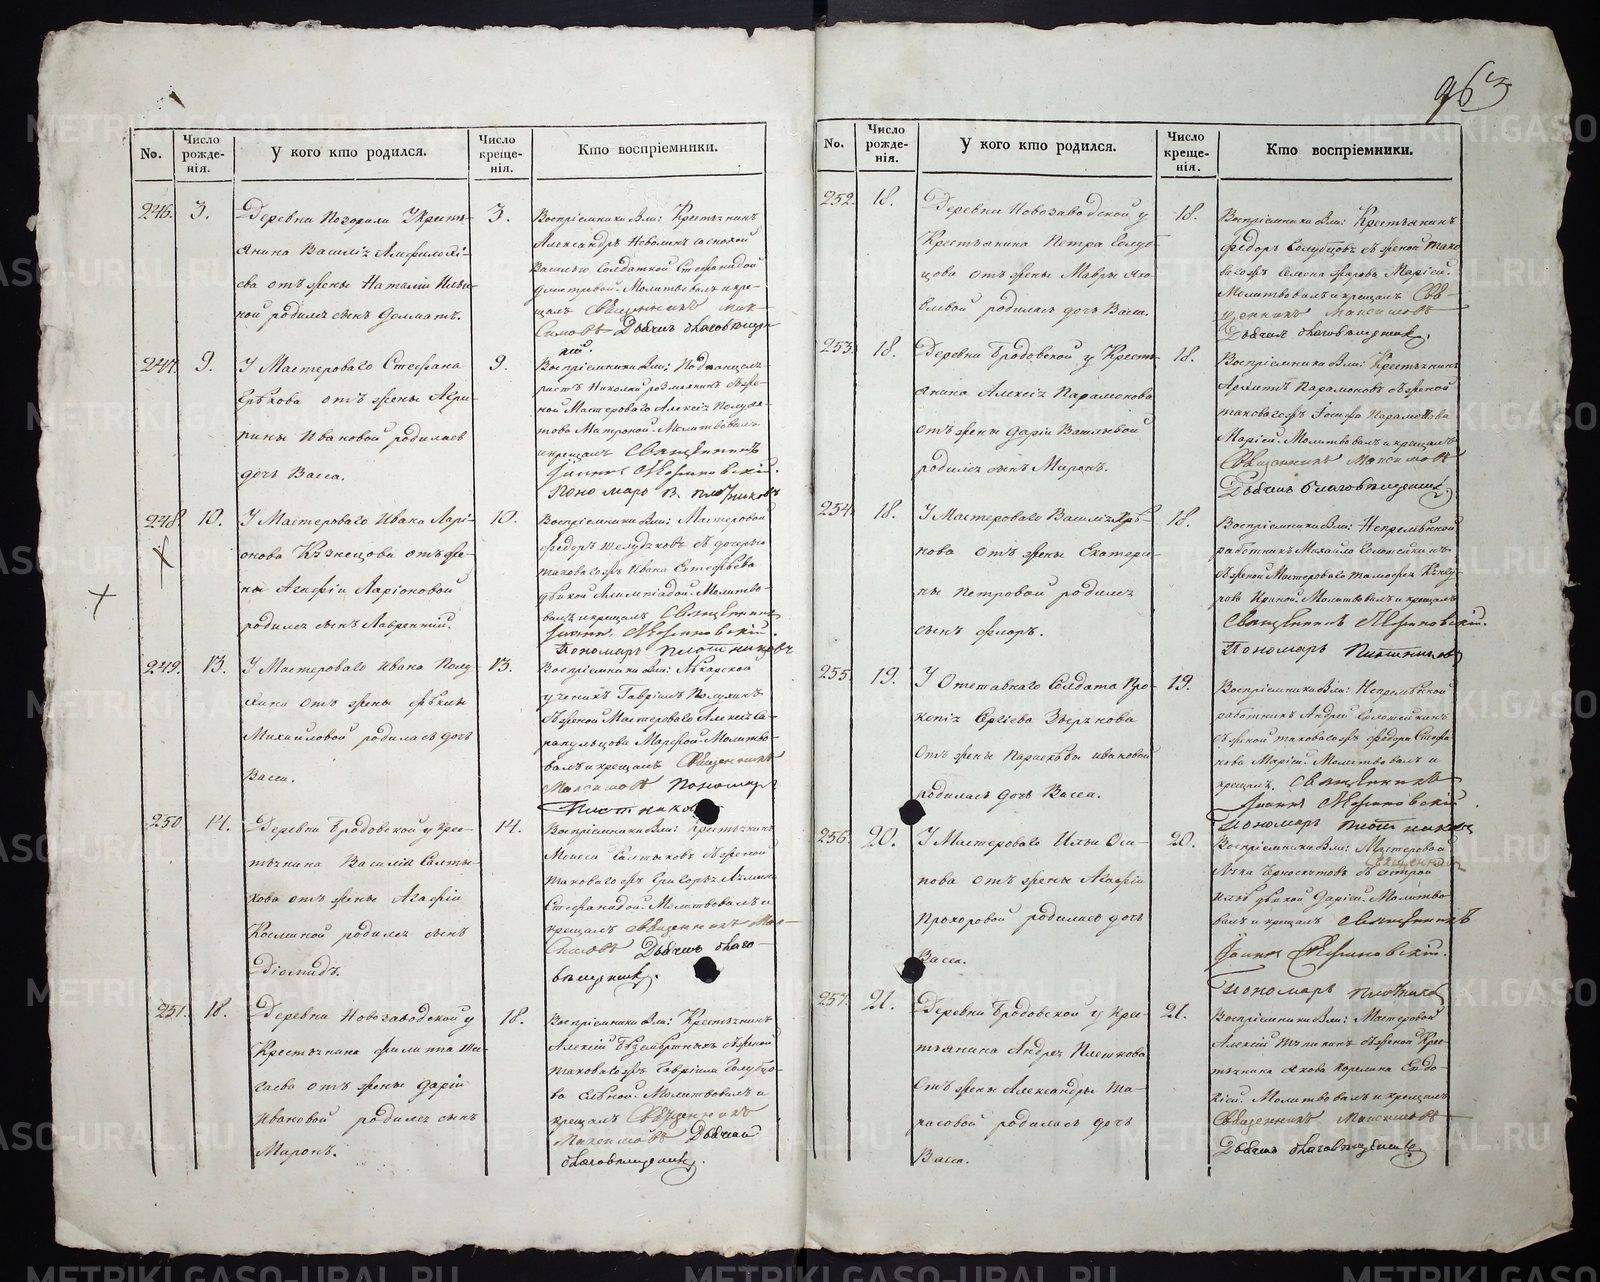 963
No.
Число рожде-нія.
У кого кто родился.
Число креще-нія.
Кто воспріемники.
246.
3.
Деревни Позарихи Укресть-
янина Василія Амфилохі-
ева отъ жены Наталіи Ильи-
ной родился сынъ Долматъ.
3.
Воспріемники были: Крестьянинъ
Александръ Неволинъ
Василья Солдаткой Стефанидой
Дмитревой. Молитвовалъ и кре-
щалъ Священникъ Мак-
симовъ Дьячекъ благовѣщен-
247.
9.
У Мастероваго Стефана
отъ жены Агри-
пины Ивановой родилась
дочь Васса.
9.
Воспріемники были:
Николай съ же-
ной Мастероваго Алексія Полуя-
това Матроной. Молитвовалъ
и крещалъ Священникъ
Іоаннъ
Пономарь В. Плотниковъ
248.
10.
У Мастероваго Ивана Ларі-
онова Кузнецова отъ же-
ны Агафіи Ларіоновой
родился сынъ Лаврентій.
10.
Воспріемники были: Мастеровой
Федоръ Шелудковъ съ дочерью
таковагожъ Ивана Евстафьева
дѣвкой Алимпіадой. Молитво-
валъ и крещалъ Священникъ
Іоаннъ
Пономарь Плотниковъ
249.
13.
У Мастероваго Ивана Полу-
хина отъ жены Ѳеклы
Михайловой родилась дочь
Васса.
13.
Воспріемники были: Лѣкарской
ученикъ Гавріилъ Полухинъ
съ женой Мастероваго Алексія Са-
рапульцова Марѳой. Молитво-
валъ и крещалъ Священникъ
Максимовъ Пономарь
Плотниковъ
250.
14.
Деревни Бродовской у Крес-
тьянина Василія Салты-
кова отъ жены Агафіи
Козминой родился сынъ
Діомидъ.
14.
Воспріемники были: Крестьянинъ
Моисей Салтыковъ съ женой
таковагожъ Григорья
Стефанидой. Молитвовалъ и
крещалъ Священникъ Мак-
симовъ Дьячекъ благо-
вѣщенскій.
251.
18.
Деревни Новозаводской у
Крестьянина Филиппа Ис-
аева отъ жены Даріи
Ивановой родился сынъ
Миронъ.
18.
Воспріемники были: Крестьянинъ
Алексій съ женой
таковагожъ Гавріила Голубцо-
ва Молитвовалъ и
крещалъ Священникъ
Максимовъ Дьячекъ
благовѣщенскій.
No.
Число рожде-нія.
У кого кто родился.
Число креще-нія.
Кто воспріемники.
252.
18.
Деревни Новозаводской у
Крестьянина Петра Голуб-
цова отъ жены Мавры Яко-
влевой родилась дочь Васса.
18.
Воспріемники были: Крестьянинъ
Федоръ Голубцовъ съ женой тако-
вагожъ Семена Марьей.
Молитвовалъ и крещалъ Свя-
щенникъ Максимовъ
Дьячекъ благовѣщенскій.
253.
18.
Деревни Бродовской у Кресть-
янина Алексія Парамонова
отъ жены Даріи Васильевой
родился сынъ Миронъ.
18.
Воспріемники были: Крестьянинъ
Архипъ Парамоновъ съ женой
таковагожъ Іосифа Парамонова
Маріей. Молитвовалъ и крещалъ
Священникъ Максимовъ
Дьячекъ благовѣщенскій
254.
18.
У Мастероваго Василія
нова отъ жены Екатери-
ны Петровой родился
сынъ Флоръ.
18.
Воспріемники были: Непремѣнной
работникъ Михайло Соломеинъ
съ женой Мастероваго Тимофея Кунгу-
рова Ириной. Молитвовалъ и крещалъ
Священникъ
Пономарь Плотниковъ
255.
19.
У Отставнаго Солдата Про-
копія Сергіева Звѣрькова
отъ жены Парасковьи Ивановой
родилась дочь Васса.
19.
Воспріемники были: Непремѣнной
работникъ Андрей
съ женой таковагожъ Федора Стефа-
нова Маріей. Молитвовалъ и
крещалъ Священникъ
Іоаннъ
Пономарь Плотниковъ
256.
20.
У Мастероваго Ильи Оси-
пова отъ жены Агафіи
Прохоровой родилась дочь
Васса.
20.
Воспріемники были: Мастеровой
Лука съ сестрой
дѣвкой Даріей. Молитво-
валъ и крещалъ Священникъ
Іоаннъ
Пономарь Плотниковъ
257.
21.
Деревни Бродовской у Крес-
тьянина Андрея Плешкова
отъ жены Александры Та-
расовой родилась дочь
Васса.
21.
Воспріемники были: Мастеровой
Алексій съ женой Крес-
тьянина Якова Корелина Евдо-
кіей. Молитвовалъ и крещалъ
Священникъ Максимовъ
Дьячекъ благовѣщенскій
METRIKI.GASO-URAL.RU